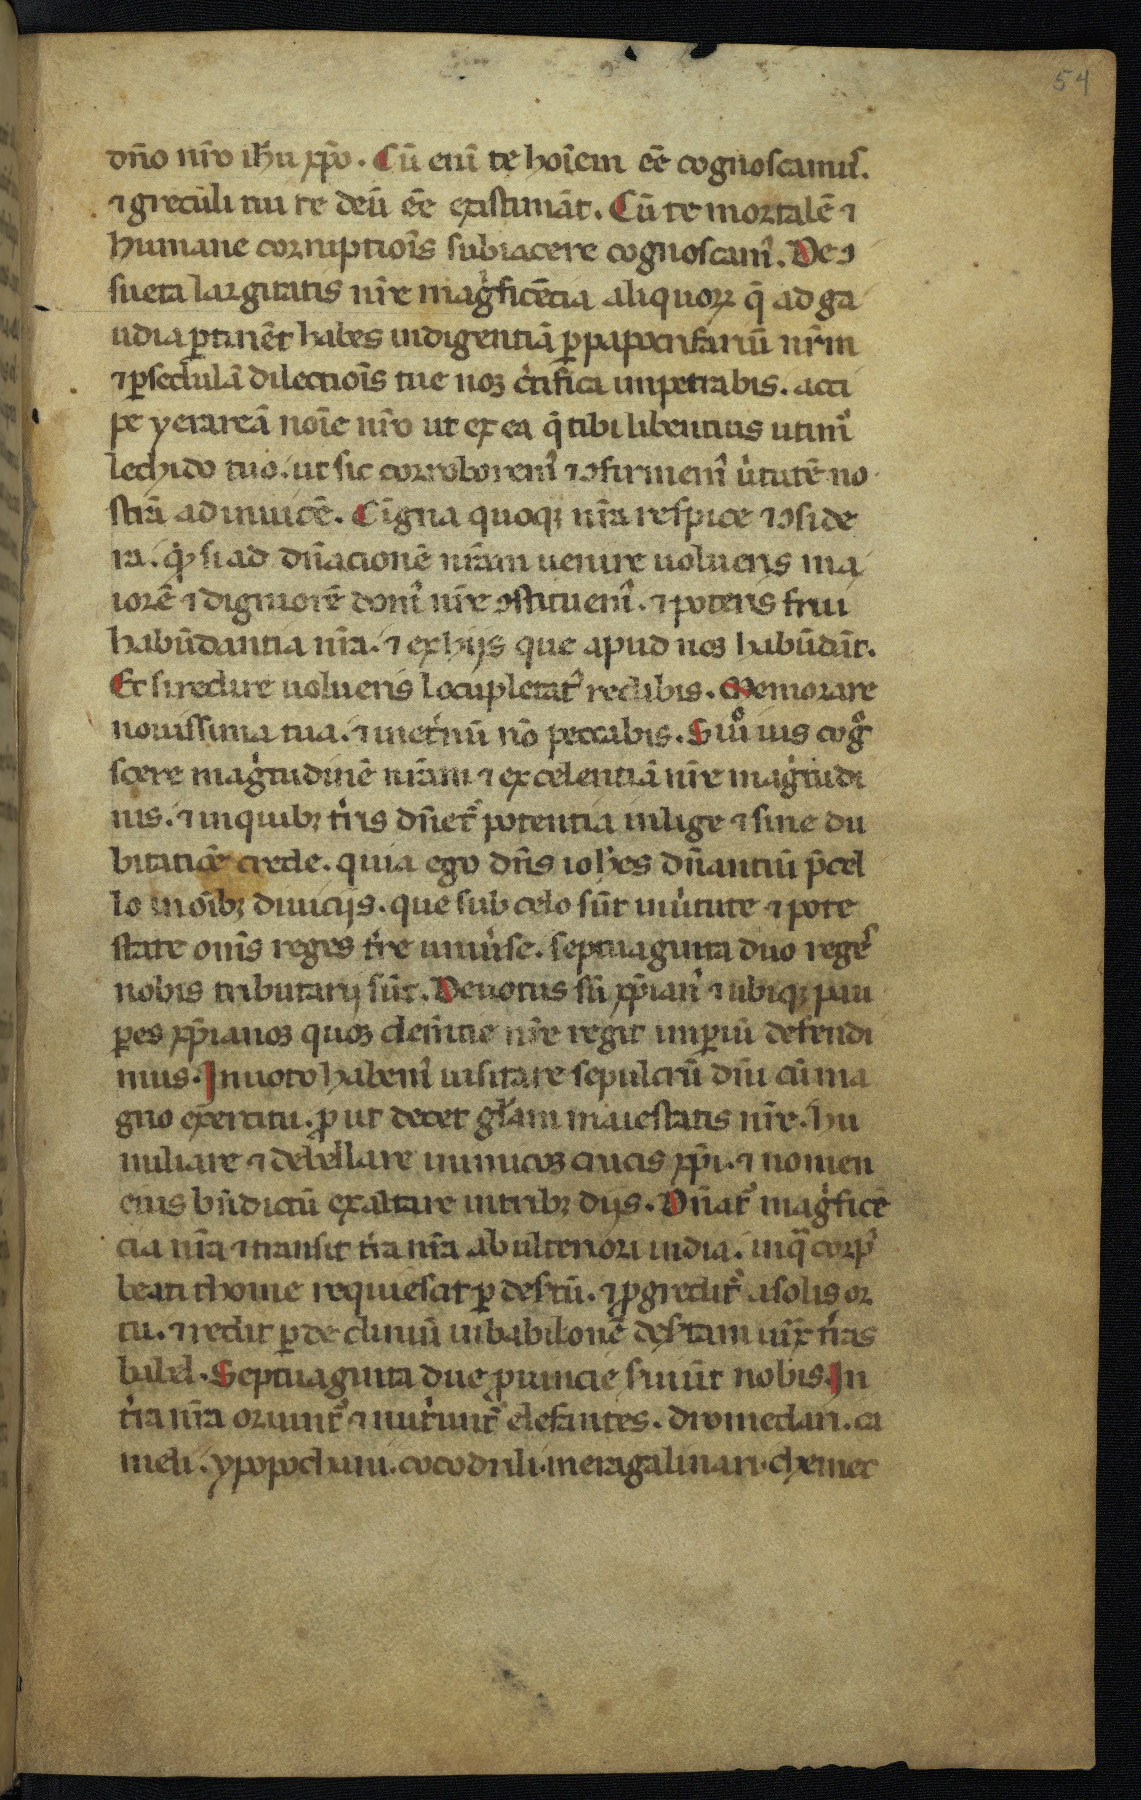 54
dn̄o nr̄o ih̄u xp̄o. Cū eni̅ te hoi̅em eē cognoscamus.
⁊ greculi tui te deū eē existimāt. Cū te mortalē ⁊
humane corruptioı̅s subiacere cognoscam᷒. De ↄ
sueta largitatis nr̄e mag̍ficētia aliquoꝝ q̄ ad ga
udia ꝑtinēt habes indigentiā ꝑ papocrifariū nr̄m
⁊ ꝑ sedulā dilectioı̅s tue noꝫ c̍tifica impetrabis. acci
pe yerarcā noı̅e nr̄o ut ex ea q̄ tibi libentius utim᷒
lechido tuo. ut sic corroborem᷒ ⁊ ↄfirmem᷒ u̍tutē no
strā ad inuicē. Cigna quoqꝫ nr̄a respice ⁊ ↄside
ra. ꝙ si ad dn̄acionē nr̄am uenire uolueris ma
iorē ⁊ digniorē dom᷒ nr̄e ↄstituem᷒. ⁊ poteris frui
habūdantia nr̄a. ⁊ ex hijs que apud nos habūdāt.
Et si redire uolueris locupletat᷒ redibis. Memorare
nouissima tua. ⁊ inet̍nū nō peccabis. Si uͦ uis cog̊
scere mag̍tudinē nr̄am ⁊ excelentiā nr̄e mag̍tudi
nis. ⁊ in quibꝫ t̍ris dn̄et᷒ potentia inlige ⁊ sine du
bitatiōe crede. quia ego dn̄s ioh̄es dn̄antiū p̄cel
lo in oı̅bꝫ diuicijs. que sub celo sūt in u̍tute ⁊ pote
state om̄s reges t̍re uniu̍se. septuaginta duo reges
nobis tributarij sūt. Deuotus sū xp̄ian᷒ ⁊ ubiqꝫ pau
ꝑes xp̄ianos quos clem̄tie nr̄e regit imꝑiū defendi
mus. In uoto habem᷒ uisitare sepulcrū dn̄i cū ma
gno exercitu. ꝓ ut decet gl̄am maiestatis nr̄e. hu
miliare ⁊ debellare inimicos crucis xp̄i. ⁊ nomen
eius bn̄dictū exaltare in tribꝫ dijs. Dn̄at᷒ mag̍ficē
cia nr̄a ⁊ transit t̍ra nr̄a ab ulteriori india. in q̄ corp᷒
beati thome requiescit ꝑ desr̄tū. ⁊ ꝓgredit᷒ a solis or
tu. ⁊ redit ꝑ decliuiū in babilonē desr̄tam iux̄ t̍ris
babel. Septuaginta due ꝓuincie s̍uiūt nobis. In
t̍ra nr̄a oriunt᷒ ⁊ nut̍unt᷒ elefantes. dromedari. ca
meli. ypopochani. cocodrili. metagalinari. chemet